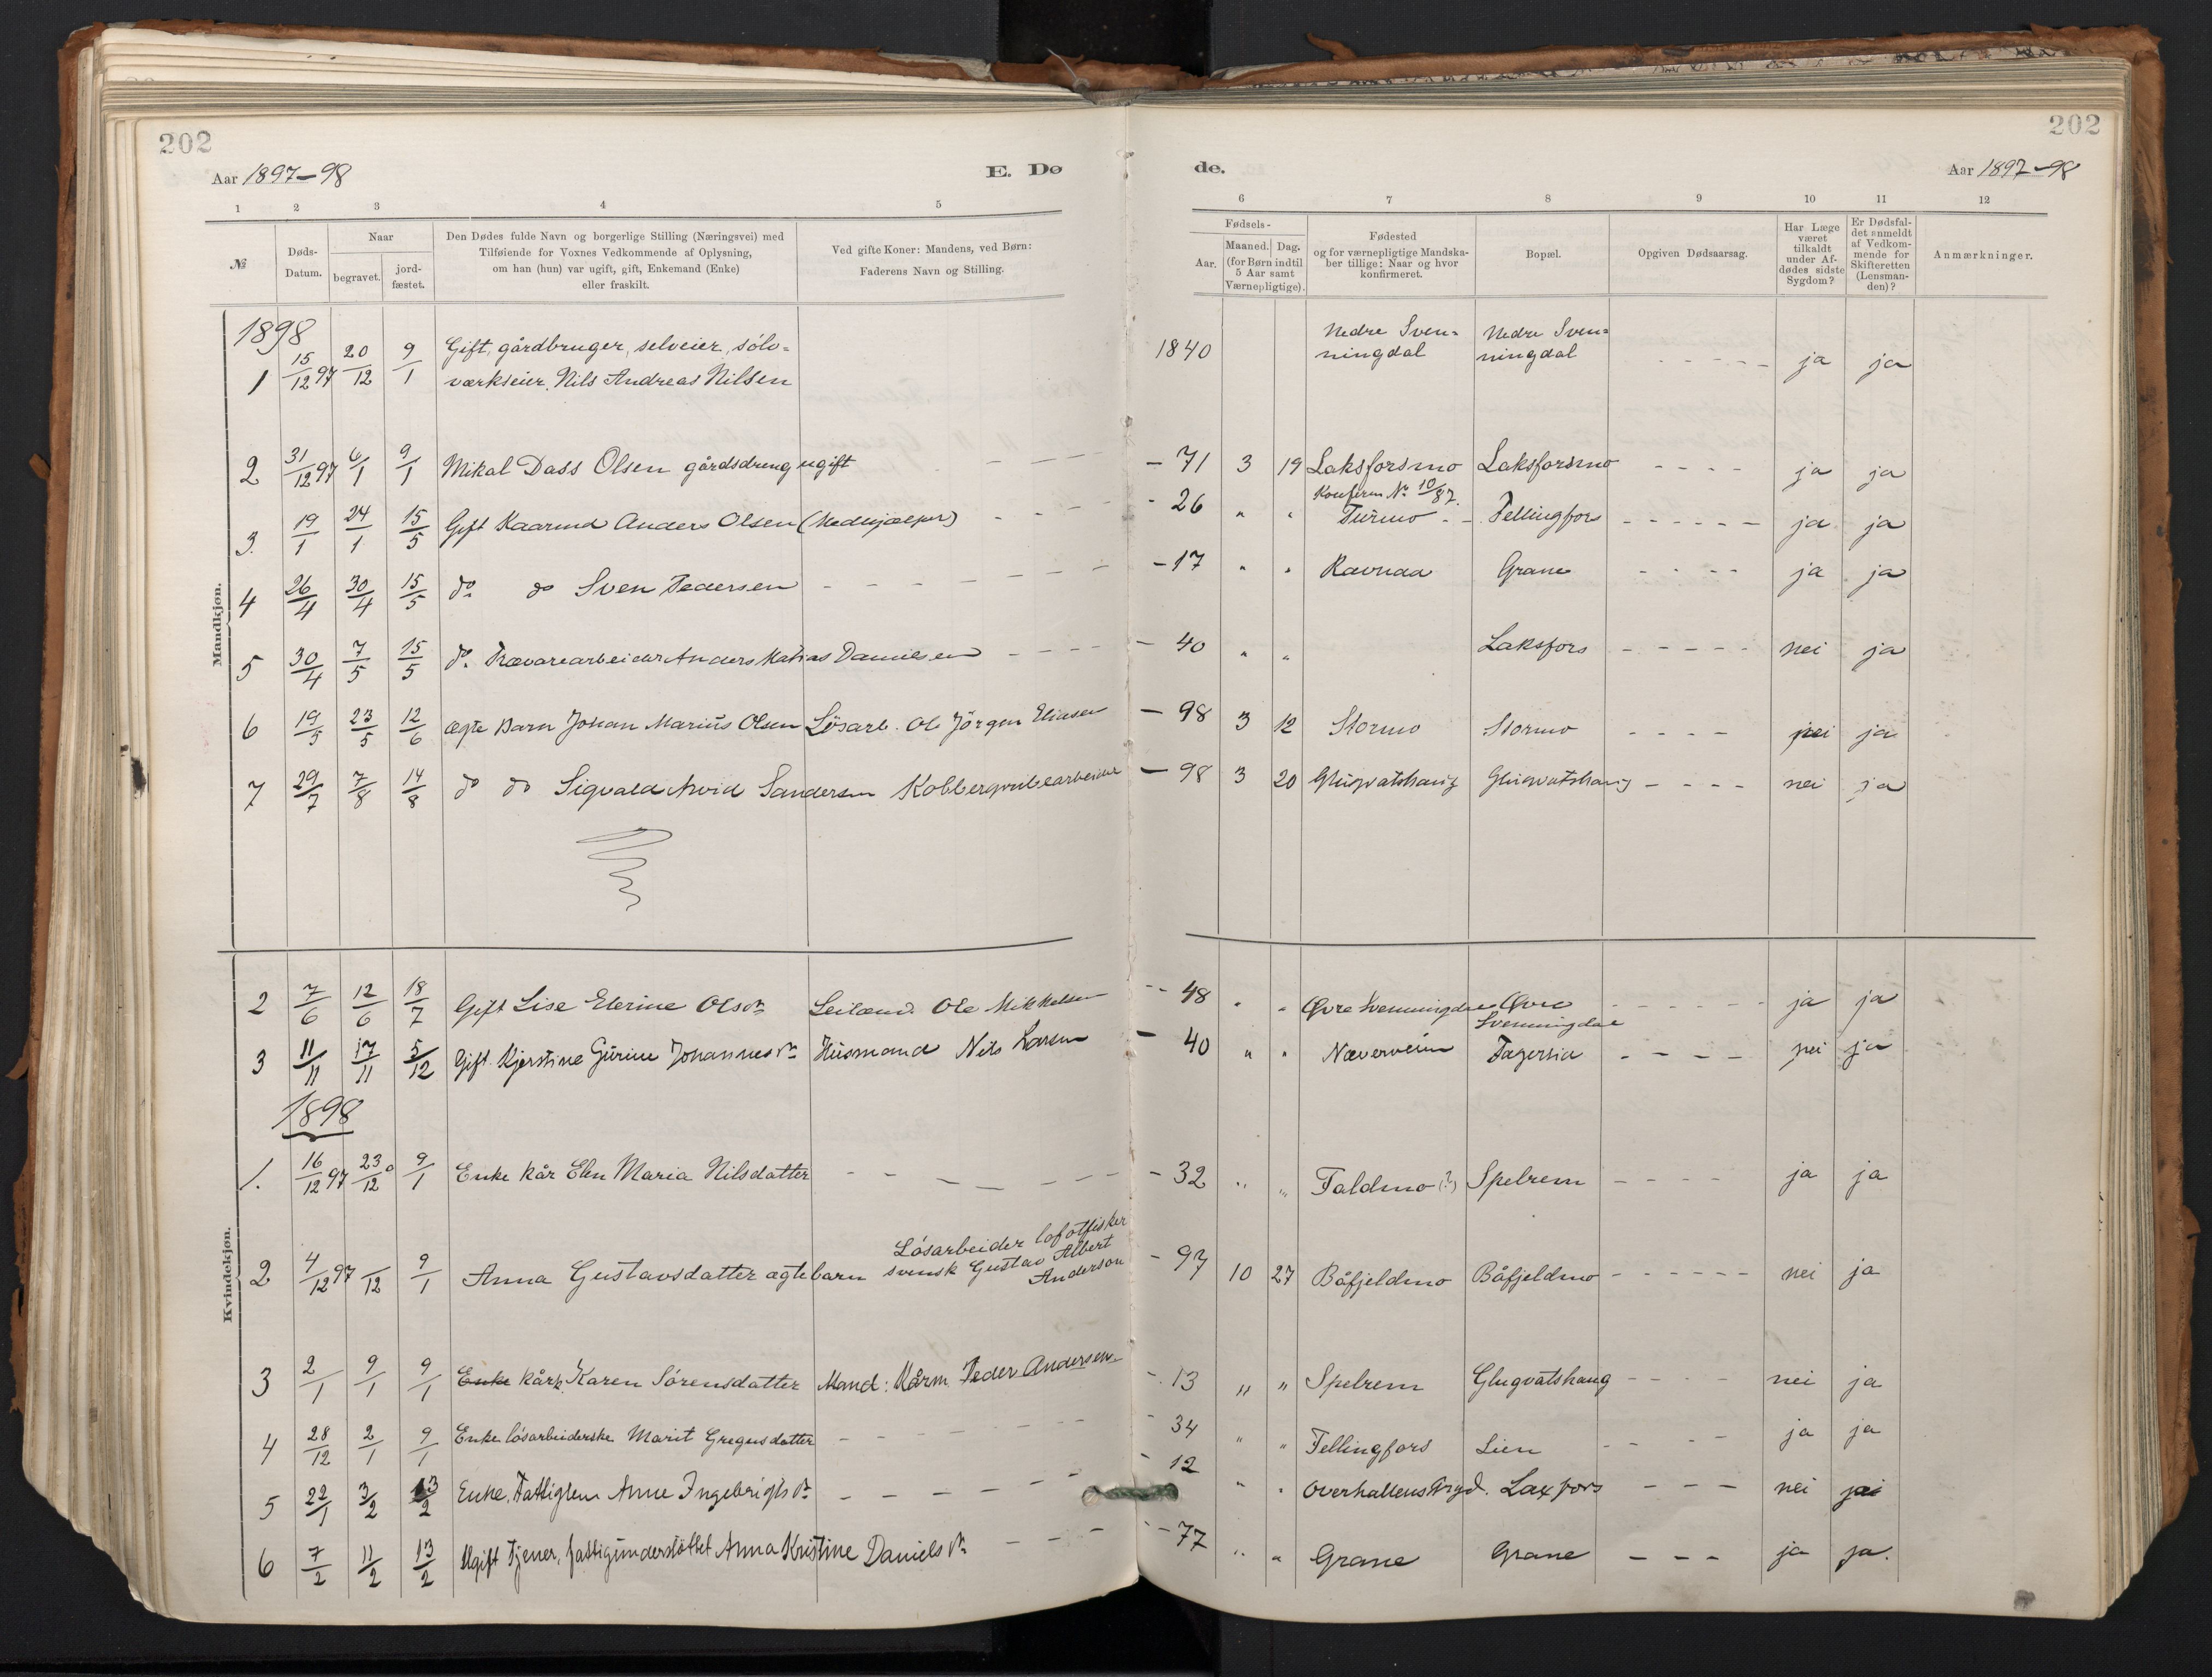 202
202
Aar 1897-98
E. Dø
de.
Aar 1897-98
1 2 3 4 5
6 7 8 9 10 11 12
№
Døds-Datum.
Naar
begravet.
jord-fæstet.
Den Dødes fulde Navn og borgerlige Stilling (Næringsvei) med
Tilføiende for Voxnes Vedkommende af Oplysning,
om han (hun) var ugift, gift, Enkemand (Enke)
eller fraskilt.
Ved gifte Koner: Mandens, ved Børn:
Faderens Navn og Stilling.
Fødsels-
Aar.
Maaned. Dag.
(for Børn indtil
5 Aar samt
Værnepligtige).
Fødested
og for værnepligtige Mandska-
ber tillige: Naar og hvor
konfirmeret.
Bopæl.
Opgiven Dødsaarsag.
Har Læge
været
tilkaldt
under Af-
dødes sidste
Sygdom?
Er Dødsfal-
det anmeldt
af Vedkom-
mende for
Skifteretten
(Lensman-
den)?
Anmærkninger.
Mandkjøn.
1898
1 15/12 97 20/12 9/1 Gift, gårdbruger, selveier, sölv=
værkseier, Nils Andreas Nilsen 1840 Nedre Sven=
ningdal Nedre Sven=
ningdal - - - - - ja ja
2 31/12 97 6/1 9/1 Mikal Dass Olsen gårdsdreng ugift - - - - 71 3 19 Laksforsmo Laksforsmo - - - - ja ja
Konferm Nr 10/87.
3. 19/1 24/1 15/5 Gift Kaarmd Anders Olsen (Medhjælper) - - - - 26 " " Turmo - - Fellingfors - - - - - - ja ja
4 26/4 30/4 15/5 do do Sven Pedersen - - - - - - - - 17 " " Ravnaa Grane - - - - ja ja
5 30/4 7/5 15/5 do. Trævarearbeider Anders Matias Danielsen - - - - - 40 " " Laksfors - - - - - nei ja
6 19/5 23/5 12/6 ægte Barn Johan Marius Olsen Lösarb. Ole Jörgen Eliasen - 98 3 12 Stormo Stormo - - - - nei ja
7 29/7 7/8 14/8 do do Sigvald Arvid Sandersen Kobbergrubearbeider - 98 3 20 Glugvatshaug Glugvatshaug - - - - nei ja
Kvindekjøn.
2 7/6 12/6 18/7 Gift Lise Elerine Olsdr Leilænd. Ole Mikkelsen - - 48 " " Øvre Svenningdal Øvre
Svenningdal - - - - - - ja ja
3 11/11 17/11 5/12 Gift Kjerstine Gurine Johannesdr Husmand Nils Larsen - 40 " " Næverveim Fagerlia - - - - nei ja
1898
1. 16/12 97 23/12 9/1 Enke kår Elen Maria Nilsdatter - - - - - - - 32 " " Faldmo (?) Spelrem - - - - ja ja
2 4/12 97 /12 9/1 Anna Gustavsdatter ægtebarn Lösarbeider lofotfisker
svensk Gustav Albert
Anderson - 97 10 27 Båfjeldmo Båfjeldmo - - - - - - nei ja
3 2/1 9/1 9/1 Enke kårk. Karen Sörensdatter Mand: Kårm. Peder Andersen - 13 " " Spelrem Glugvatshaug - - - - nei ja
4 28/12 2/1 9/1 Enke lösarbeiderske Marit Gregusdatter - - - - - - - 34 " " Fellingfors Lien - - - - ja ja
5 22/1 3/2 13/2 Enke, Fattiglem Anne Ingebrigtsdr - - - - - - 12 " " Overhallens Prgd. Laxfors - - - nei ja
6 7/2 11/2 13/2 Ugift Tjener, fattigunderstöttet Anna Kristine Danielsdr - - - - 77 " " Grane Grane - - - ja ja.